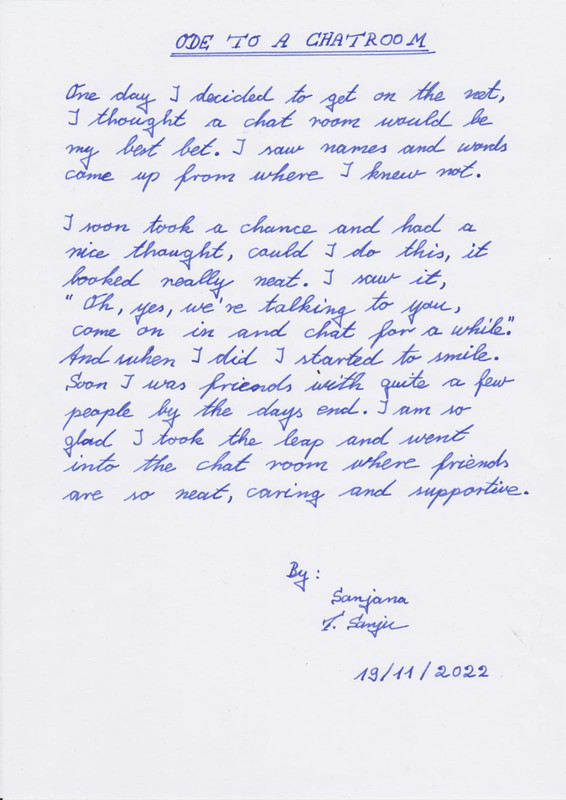 ODE TO A CHATROOM
One day I decided to get on the net,
I thought a chat room would be
my best bet. I saw names and words
come up from where I knew not.
I soon took a chance and had a
nice thought, could I do this, it
looked really neat. I saw it,
"Oh, yes, we're talking to you,
come on in and chat for a while."
And when I did I started to smile.
Soon I was friends with quite a few
people by the days end. I am so
glad I took the leap and went
into the chat room where friends
are so neat, caring and supportive.
By:
Sanjana
T. Sanju
19/11/2022